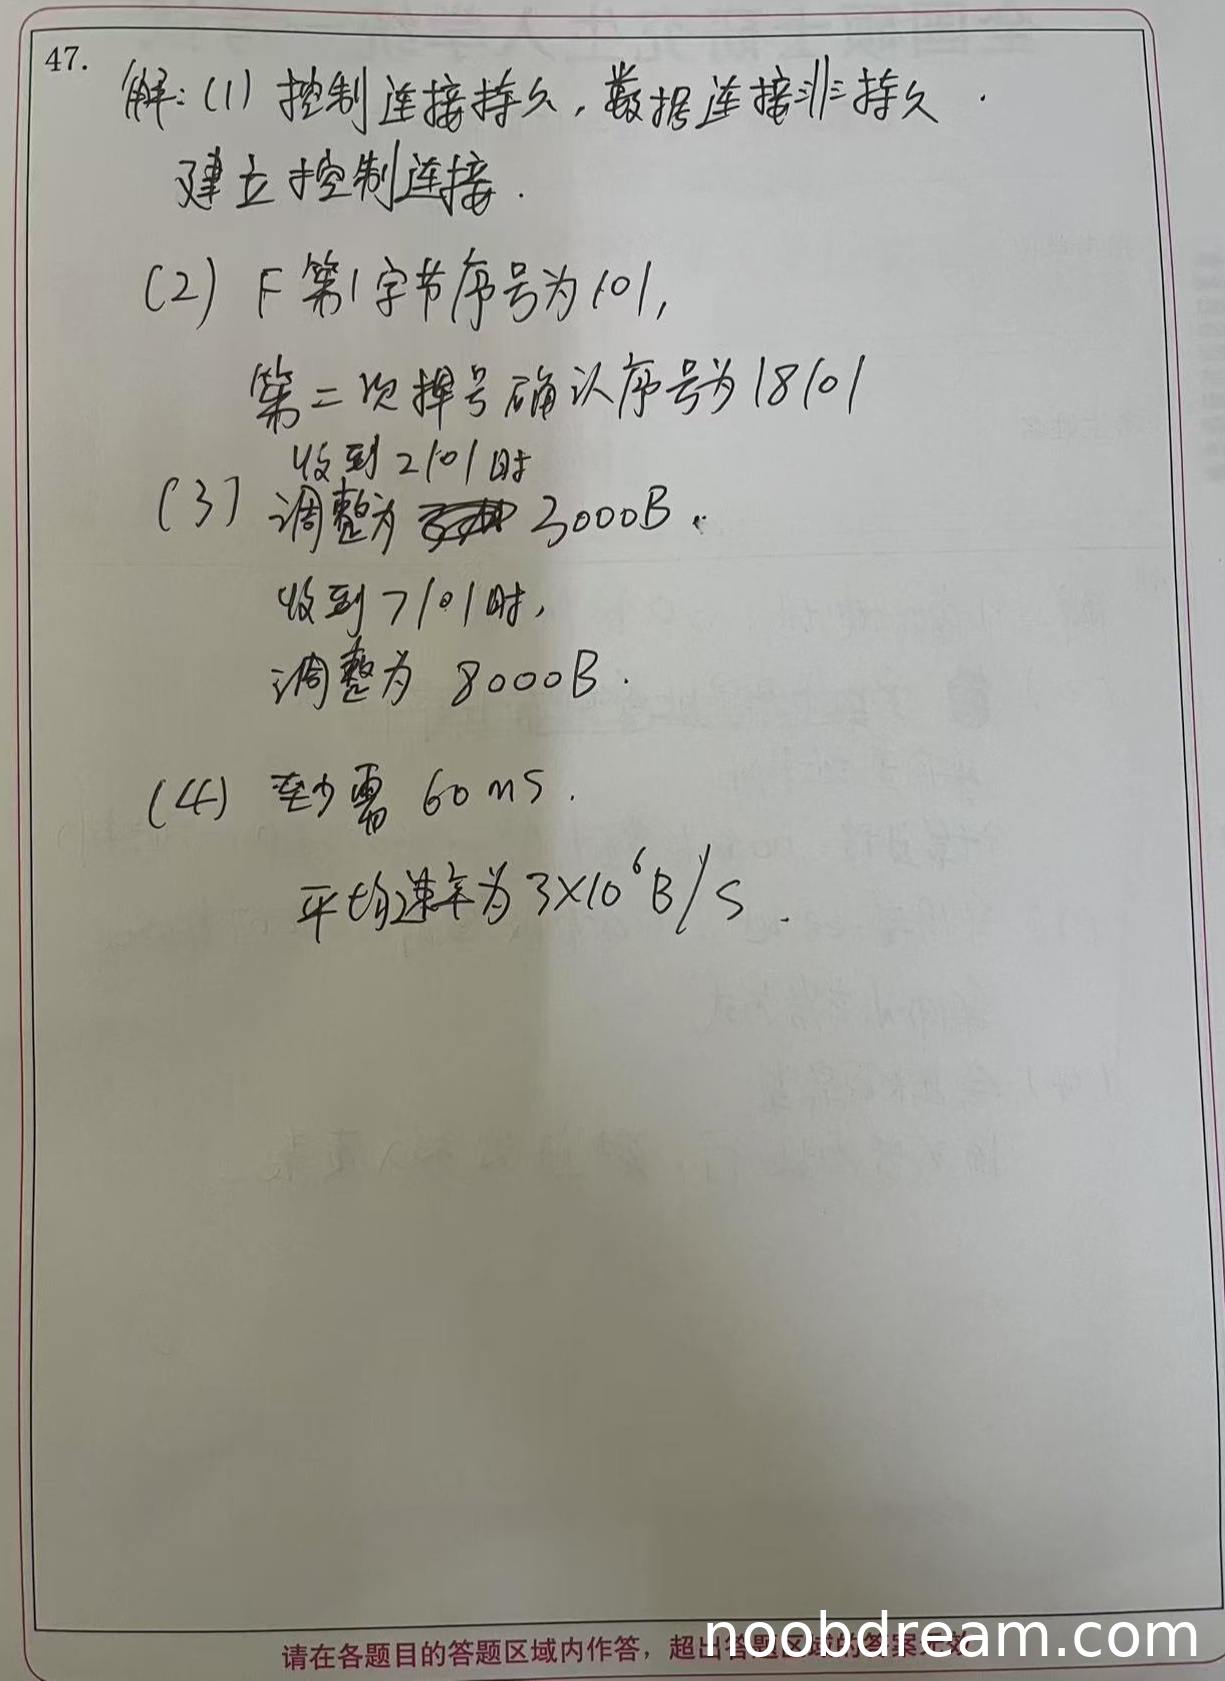 47.
解：(1) 控制连接持久，数据连接非持久．
建立控制连接．
(2) F第1字节序号为101，
第二次挥号确认序号为18101
收到2101时
(3) 调整为 3000B．
收到7101时，
调整为 8000B．
(4) 至少需 60ms．
平均速率为3×10⁶B/s．
请在各题目的答题区域内作答，超出答题区域的答案无效
noobdream.com